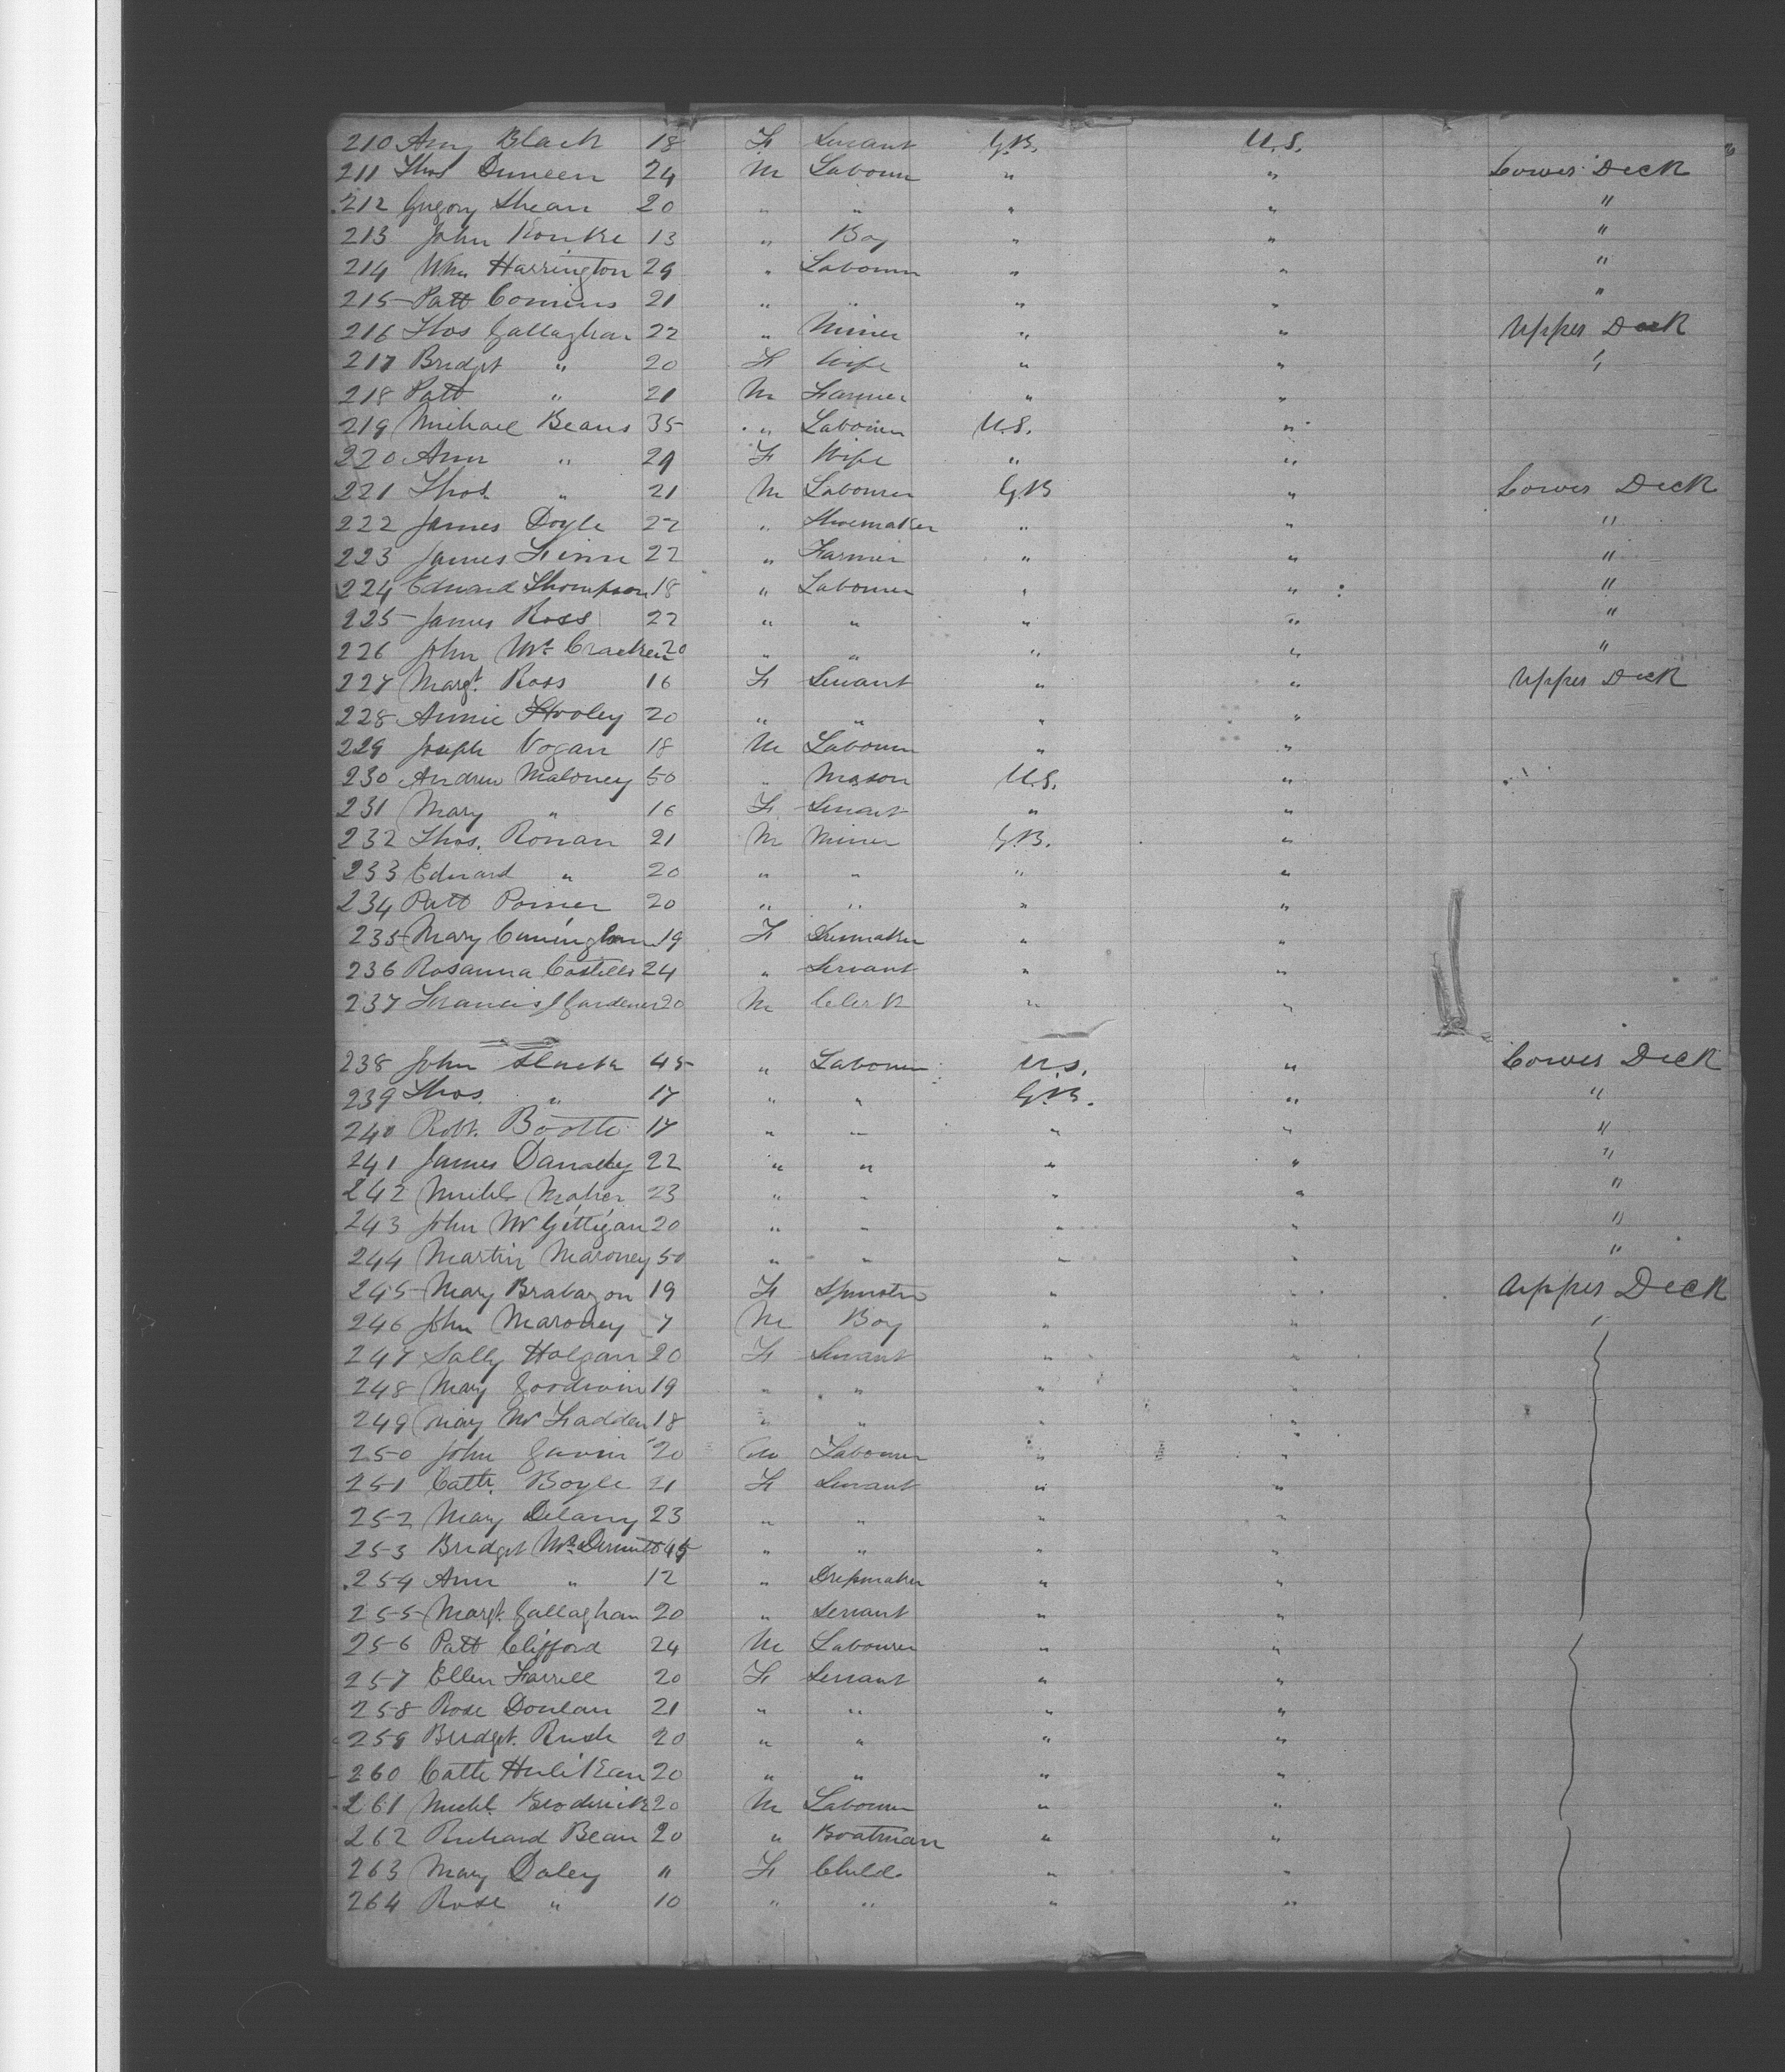 210 Amy Black 18 F Servant G.B. U.S.
211 Thos Duneen 24 M Labourer " " Lower Deck
212 Gregory Shean 20 " " " " "
213 John Rourke 13 " Boy " " "
214 Wm Harrington 29 " Labourer " " "
215 Patt Comins 21 " " " " "
216 Thos Gallaghan 22 " Miner " " Upper Deck
217 Bridget " 20 F Wife " " "
218 Patt " 21 M Farmer " "
219 Michael Beans 35 " Labourer U.S. "
220 Ann " 29 F Wife " "
221 Thos. " 21 M Labourer GB " Lower Deck
222 James Doyle 22 " Shoemaker " " "
223 James Finn 22 " Farmer " " "
224 Edward Thompson 18 " Labourer " " "
225 James Ross 22 " " " " "
226 John Mc Cracken 20 " " " " "
227 Margt. Ross 16 F Servant " " Upper Deck
228 Annie Hooley 20 " " " "
229 Joseph Vogan 18 M Labourer " "
230 Andrew Maloney 50 " Mason U.S. "
231 Mary " 16 F Servant " "
232 Thos. Ronan 21 M Miner G.B. "
233 Edward " 20 " " " "
234 Patt 20 " " " "
235 Mary Cuningham 19 F Dressmaker " "
236 Rosanna Costello 24 " Servant " "
237 Francis J Gardener 20 M Clerk " "
238 John 45 " Labourer U.S. " Lower Deck
239 Thos. " 17 " " G.B. " "
240 Robt. Booth 17 " " " " "
241 James 22 " " " " "
242 Michl Maher 23 " " " " "
243 John Mc Gettigan 20 " " " " "
244 Martin Maroney 50 " " " " "
245 Mary Brabazon 19 F Spinster " " Upper Deck
246 John Maroney 7 M Boy " " "
247 Sally Holgan 20 F Servant " "
248 Mary Goodwin 19 " " " "
249 Mary Mc Fadden 18 " " " "
250 John Gavin 20 M Labourer " "
251 Cath. Boyle 21 F Servant " "
252 Mary Delany 23 " " " "
253 Bridget Mc Dermott 45 " " " "
254 Ann " 12 " Dressmaker " "
255 Margt. Gallaghan 20 " Servant " "
256 Patt Clifford 24 M Labourer " "
257 Ellen Farrell 20 F Servant " "
258 Rose Donlan 21 " " " "
259 Bridget. Rush 20 " " " "
260 Cath Hulikan 20 " " " "
261 Michl. Broderick 20 M Labourer " "
262 Richard Bean 20 " Boatman " "
263 Mary Daley " F Child " "
264 Rose " 10 " " " "